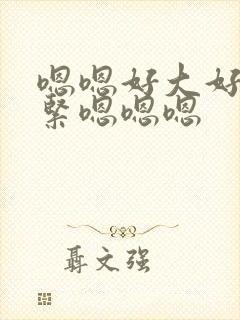 嗯嗯好大好
紧嗯嗯嗯
聂文强